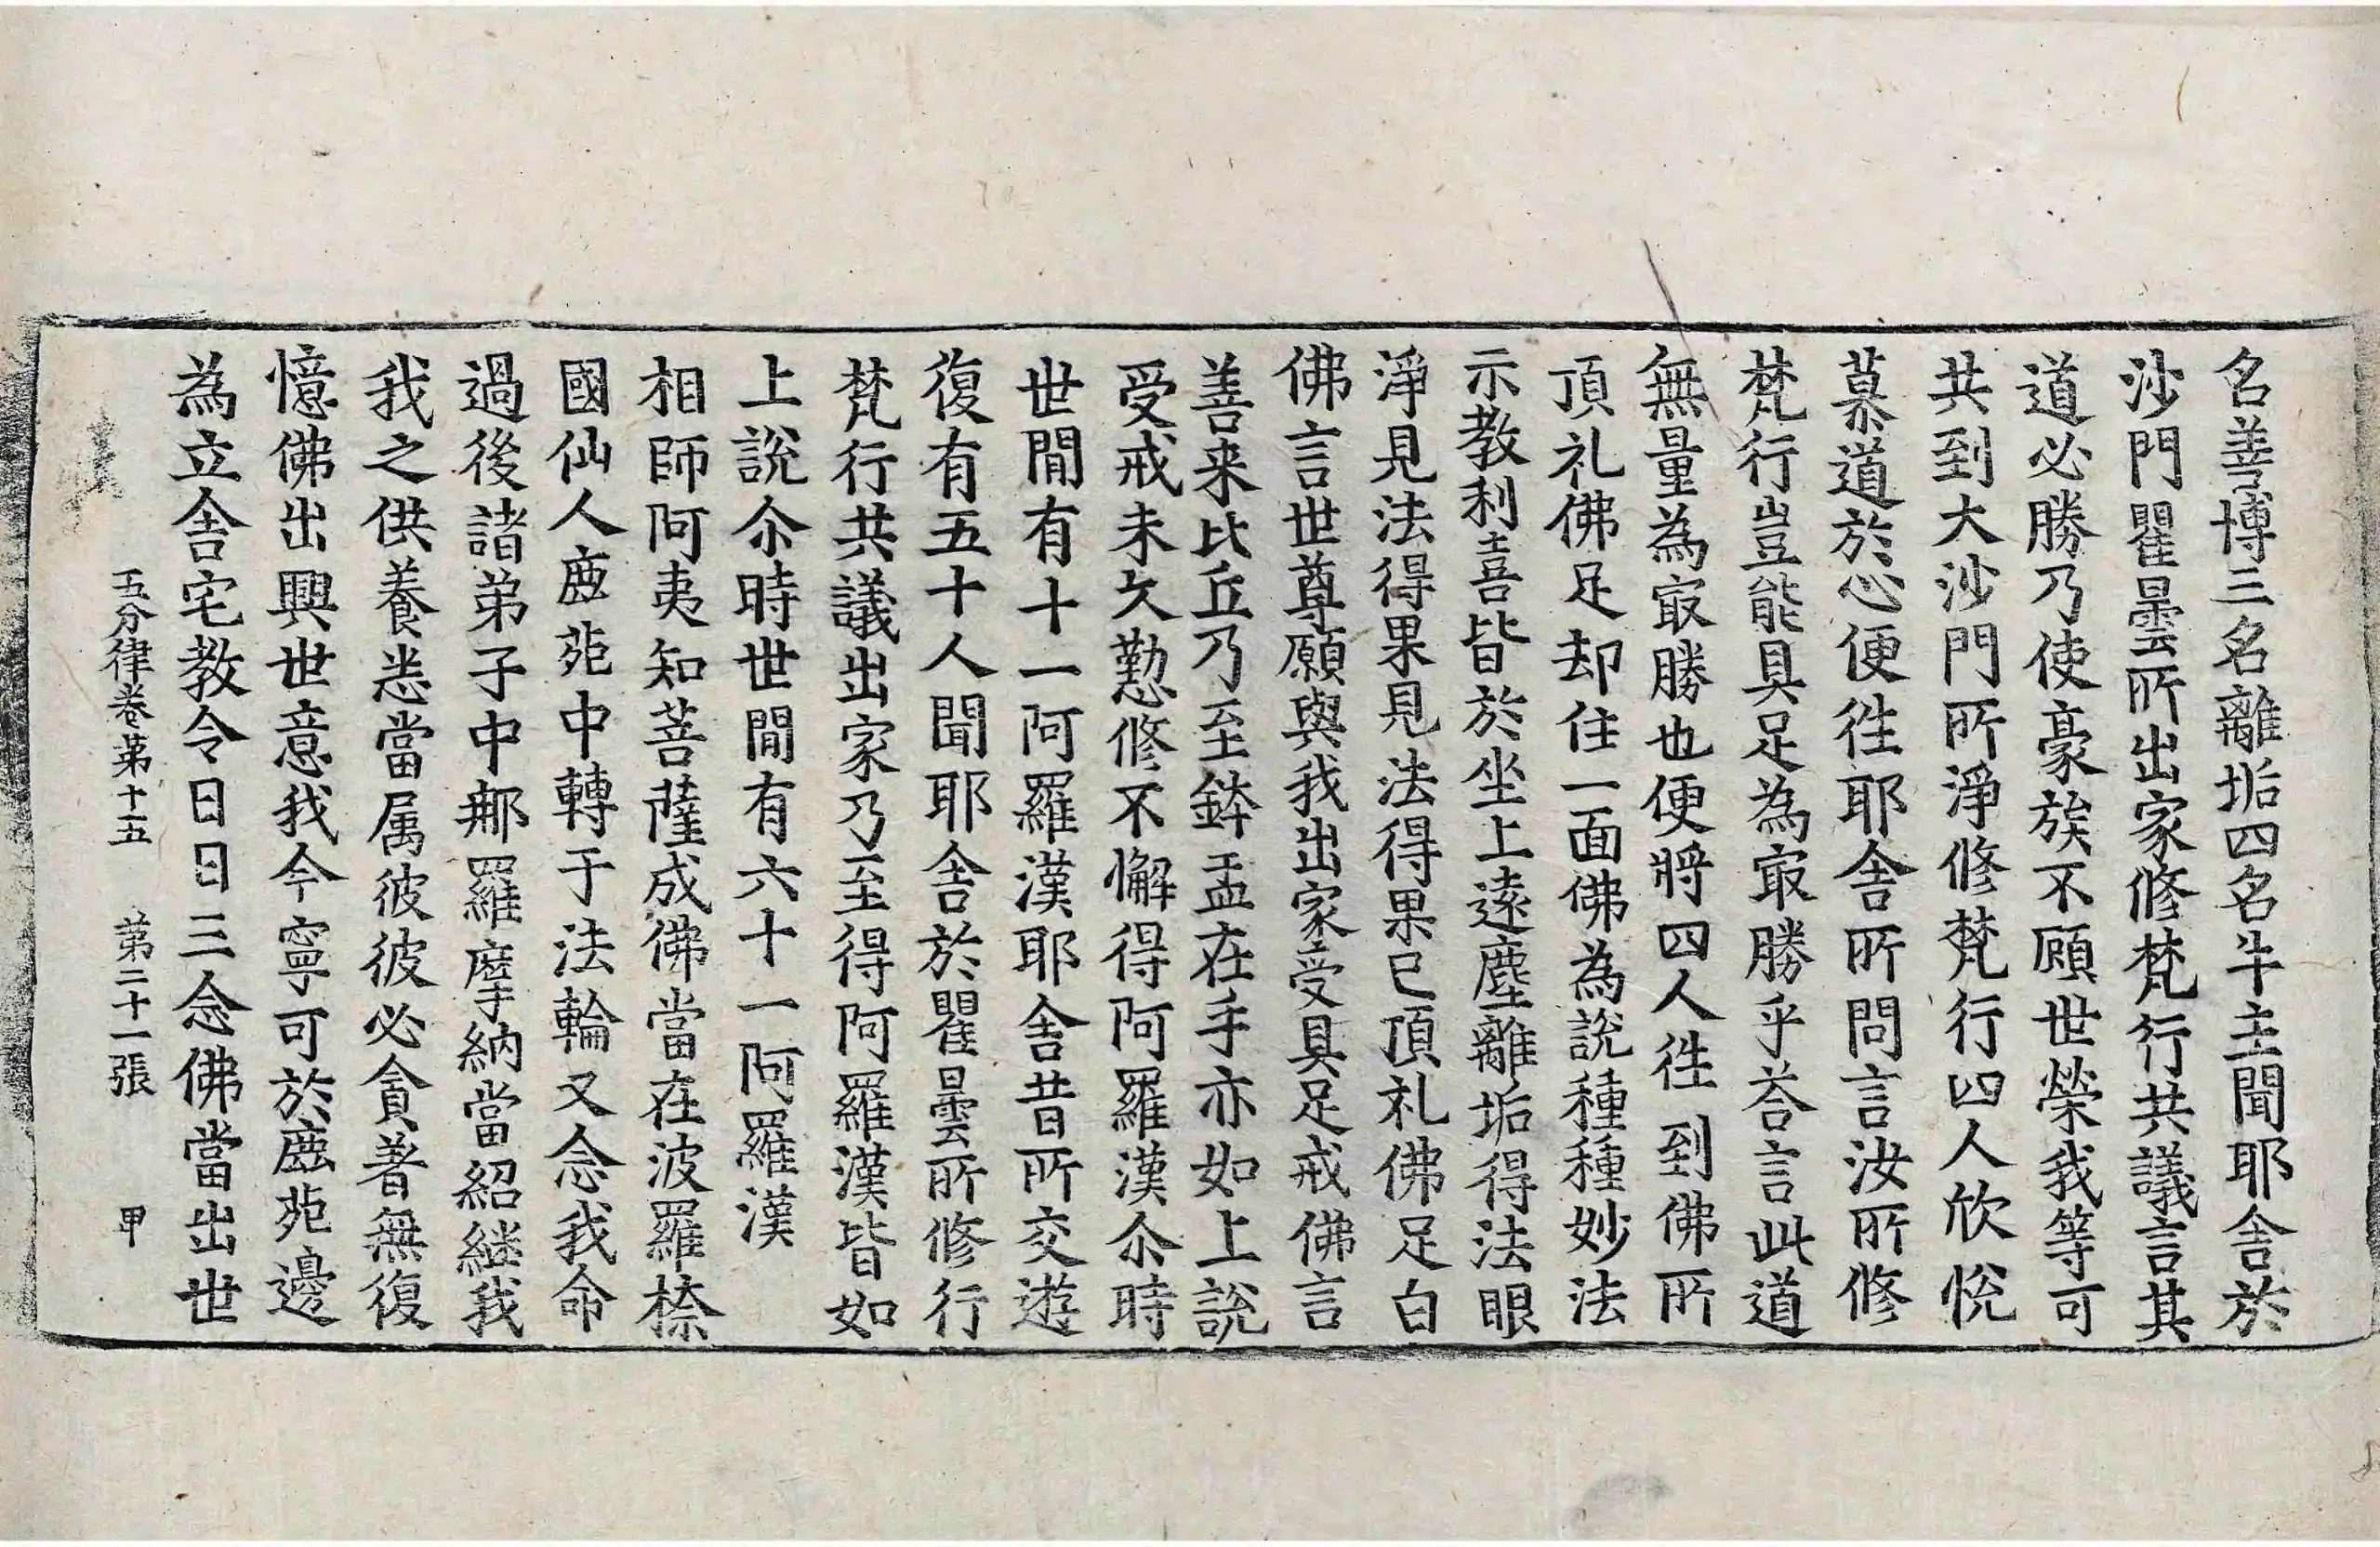 名善博三名離垢四名牛主聞耶舍於
沙門瞿曇所出家修梵行共議言其
道必勝乃使豪族不願世榮我等可
共到大沙門所淨修梵行四人欣悅
慕道於心便徃耶舍所問言汝所修
梵行豈能具足為㝡勝乎荅言此道
無量為㝡勝也便將四人徃到佛所
頂礼佛足却住一面佛為說種種妙法
示教利喜皆於坐上遠塵離垢得法眼
淨見法得果見法得果已頂礼佛足白
佛言世尊願與我出家受具足戒佛言
善来比丘乃至鉢盂在手亦如上說
受戒未久懃修不懈得阿羅漢尒時
世閒有十一阿羅漢耶舍昔所交遊
復有五十人聞耶舍於瞿曇所修行
梵行共議出家乃至得阿羅漢皆如
上說尒時世閒有六十一阿羅漢
相師阿夷知菩薩成佛當在波羅㮈
國仙人鹿苑中轉于法輪又念我命
過後諸弟子中那羅摩納當紹継我
我之供養悉當属彼彼必貪著無復
憶佛出興世意我今寧可於鹿苑邊
為立舍宅教令日日三念佛當出世
五分律卷第十五　第二十一張　甲